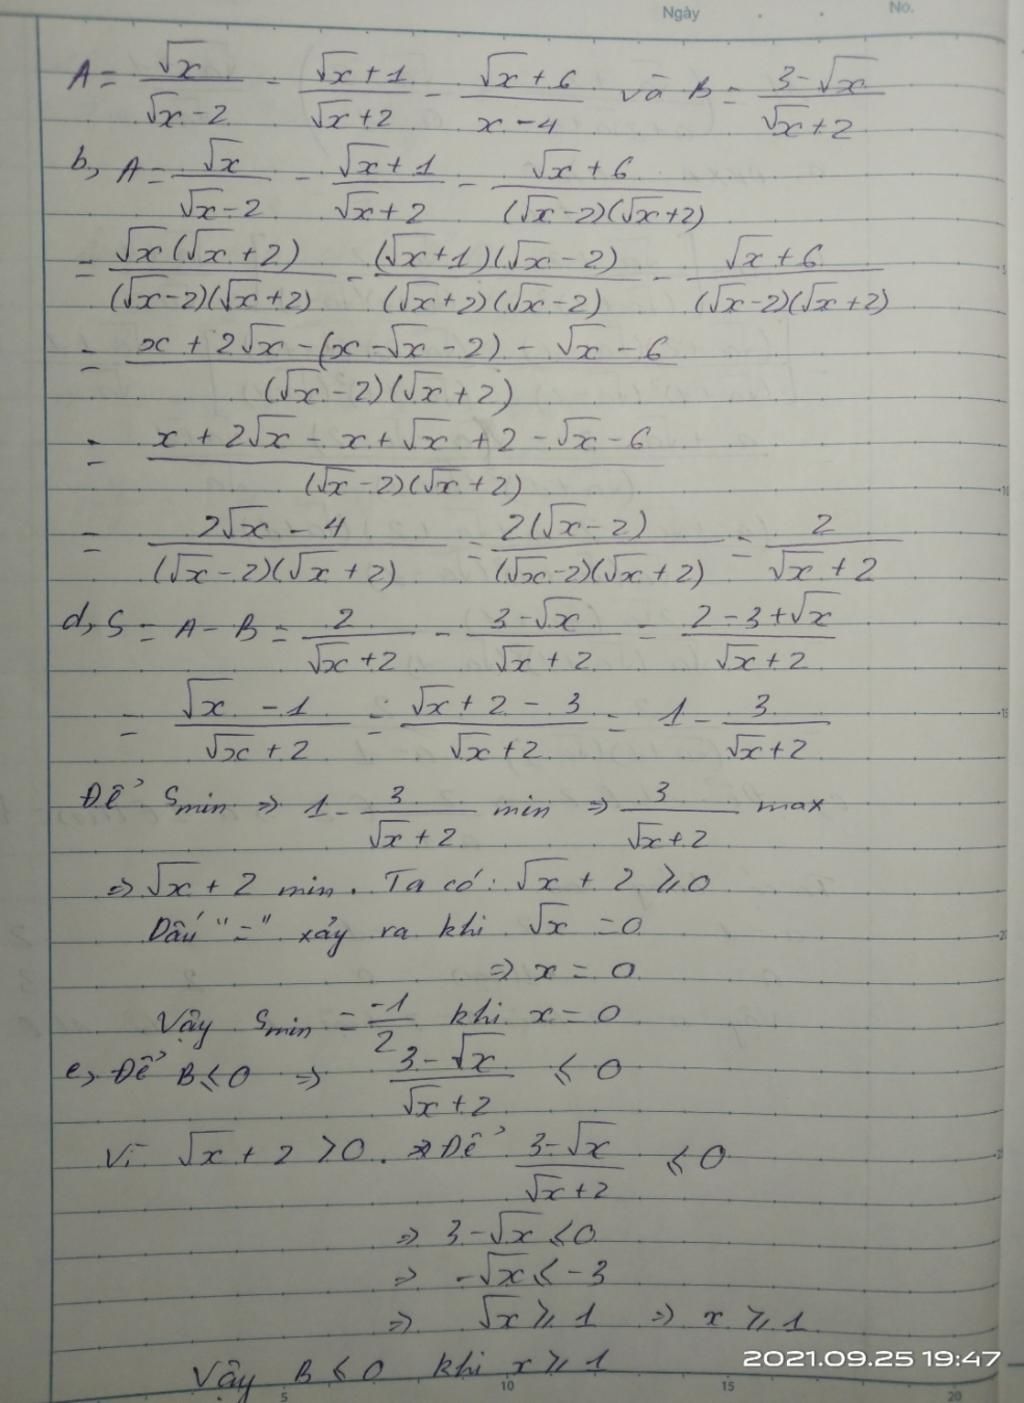 Ngày No.
A = √x/(√x-2) - (√x+1)/(√x+2) - (√x+6)/(x-4) và B = (3-√x)/(√x+2)
b, A = √x/(√x-2) - (√x+1)/(√x+2) - (√x+6)/((√x-2)(√x+2))
= √x(√x+2)/((√x-2)(√x+2)) - (√x+1)(√x-2)/((√x+2)(√x-2)) - (√x+6)/((√x-2)(√x+2))
= (x+2√x-(x-√x-2)-√x-6)/((√x-2)(√x+2))
= (x+2√x-x+√x+2-√x-6)/((√x-2)(√x+2))
= (2√x-4)/((√x-2)(√x+2)) = 2(√x-2)/((√x-2)(√x+2)) = 2/(√x+2)
d, S = A - B = 2/(√x+2) - (3-√x)/(√x+2) = (2-3+√x)/(√x+2)
= (√x-1)/(√x+2) = (√x+2-3)/(√x+2) = 1 - 3/(√x+2)
Để Smin ⇒ 1 - 3/(√x+2) min ⇒ 3/(√x+2) max
⇒ √x+2 min. Ta có: √x+2 ⩾ 0
Dấu "=" xảy ra khi √x = 0
⇒ x = 0
Vậy Smin = -1/2 khi x = 0
e, Để B ⩽ 0 ⇒ (3-√x)/(√x+2) ⩽ 0
Vì √x+2 > 0. Để (3-√x)/(√x+2) ⩽ 0
⇒ 3-√x ⩽ 0
⇒ -√x ⩽ -3
⇒ √x ⩾ 1 ⇒ x ⩾ 1
Vậy B ⩽ 0 khi x ⩾ 1
2021.09.25 19:47
5 10 15 20